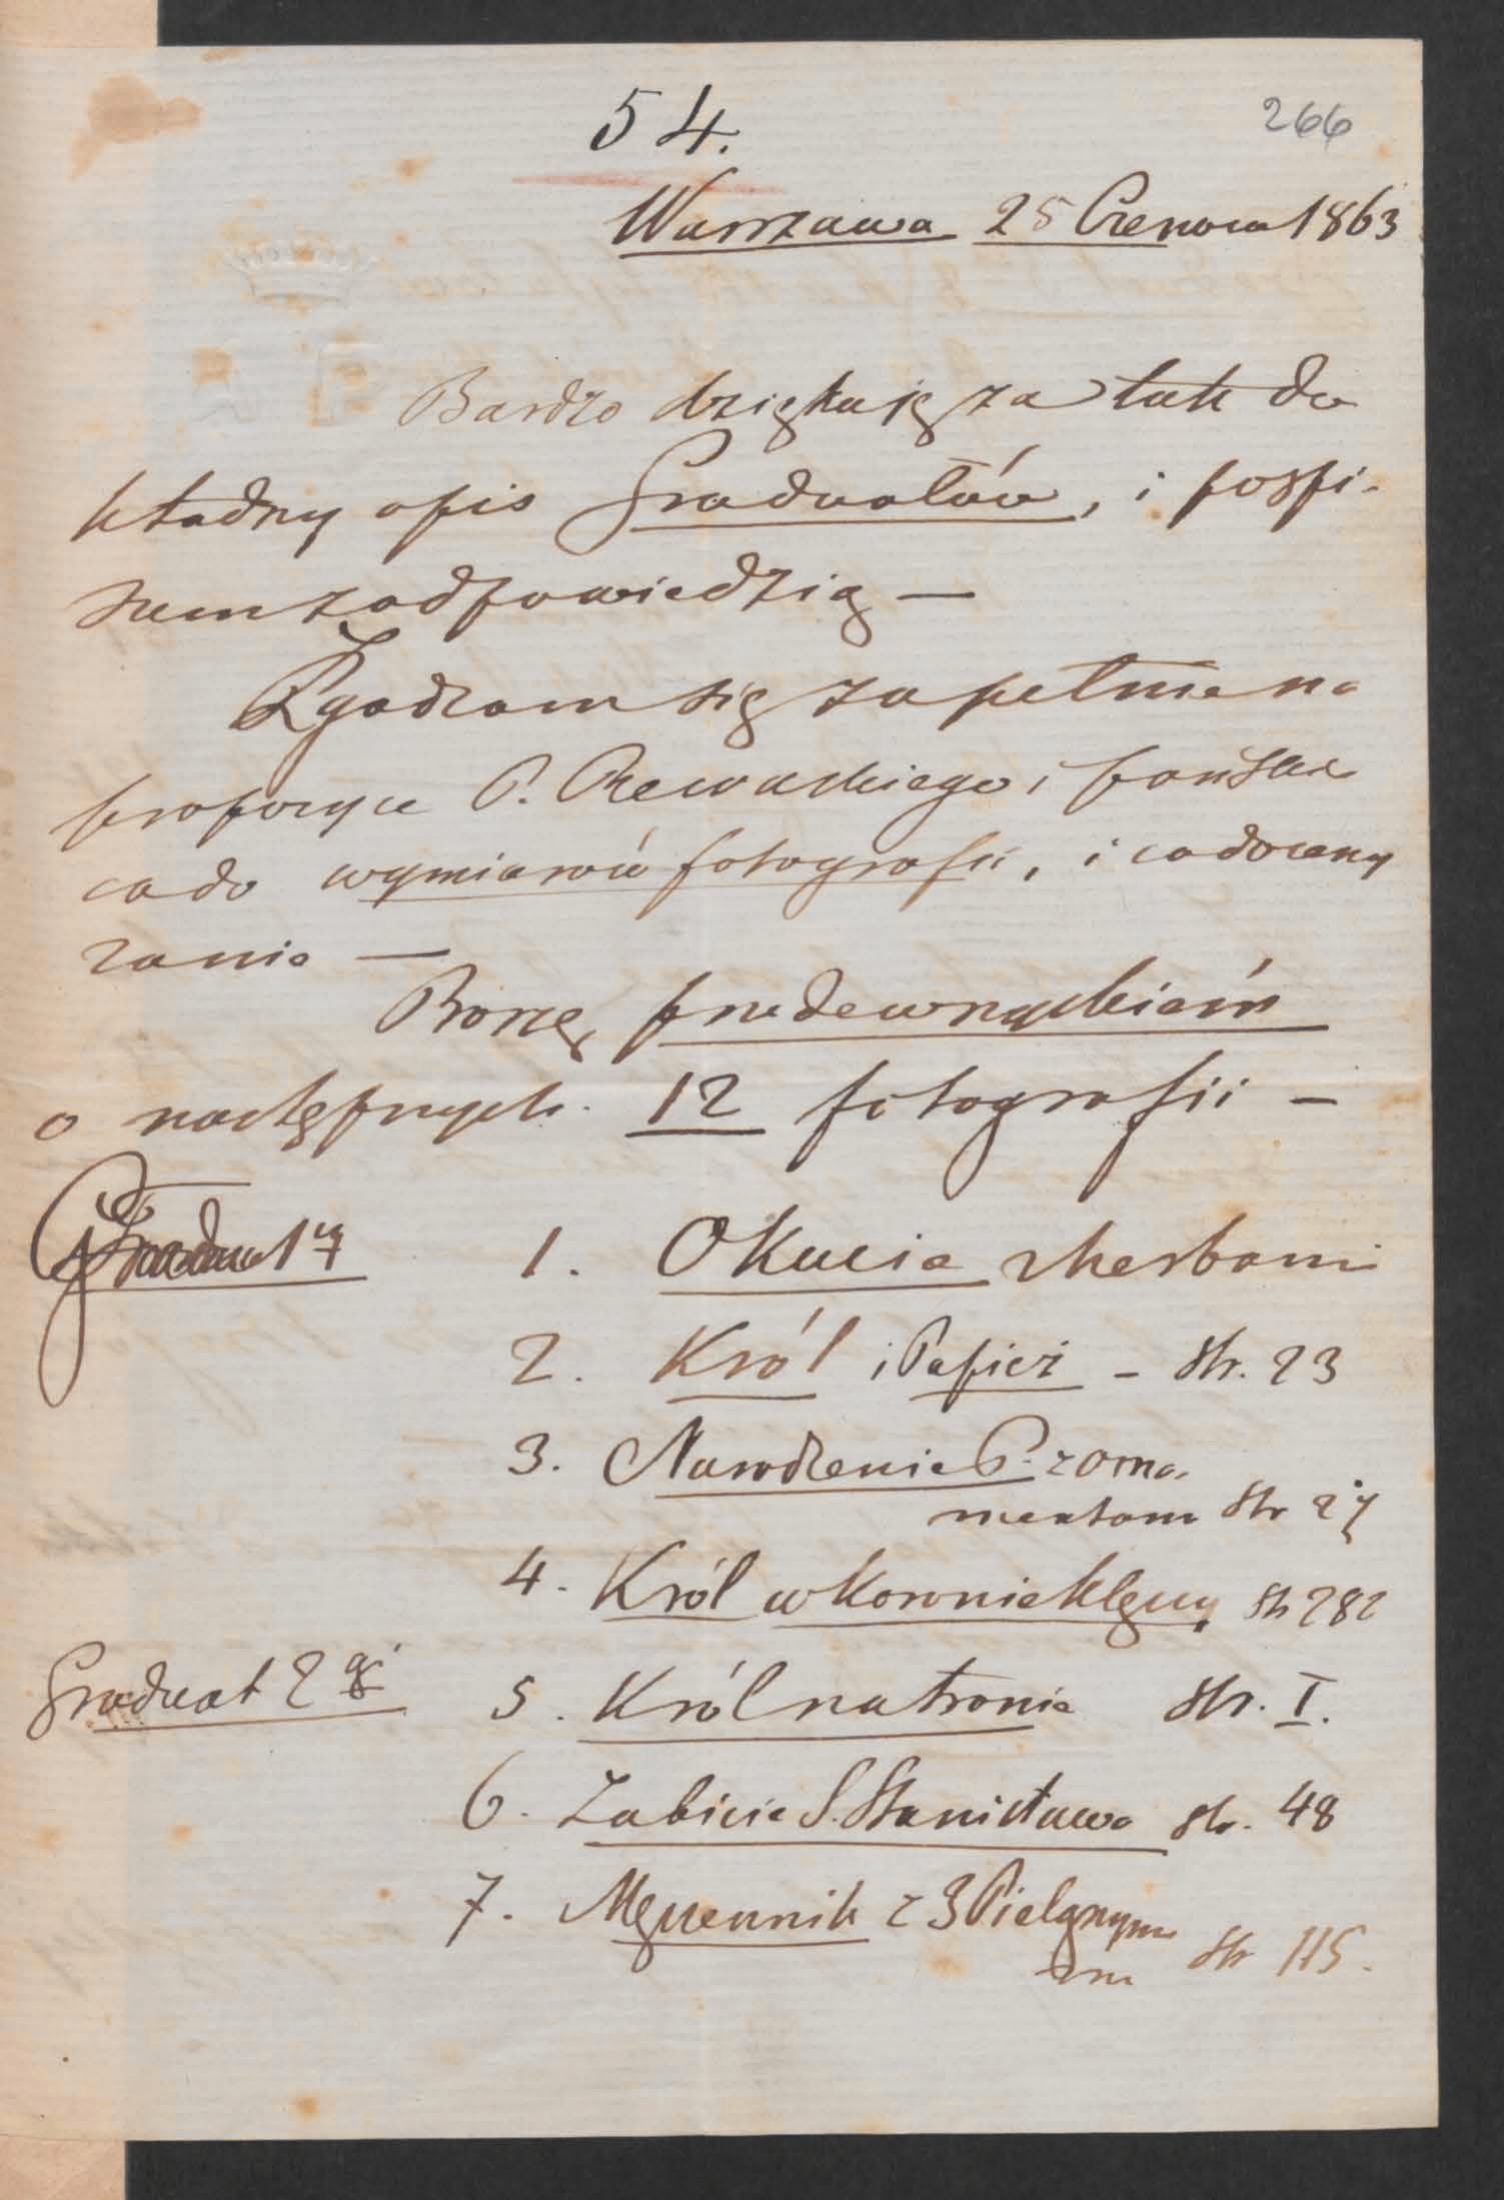 54.
266
Warszawa 25 Czerwca 1863
Bardzo dziękuję za tak do
kładny opis Graduałów, i pospi-
szam z odpowiedzią —
Zgadzam się zupełnie na
propozycje P. i
co do wymiarów fotografii, i co do ceny
zanie —
Proszę przedewszystkiém
o następnych 12 fotografii —
Graduał 1y 1. Okucie z herbami
2. Król i Papież - str. 23
3. Narodzenie P. z orna-
mentam str 27
4. Król w koronie klęczy str 282
Graduał 2gi 5. Król na tronie str. I.
6. Zabicie S. Stanisława str. 48
7. Męczennik z 3 Pielgrzym
ami str 115.